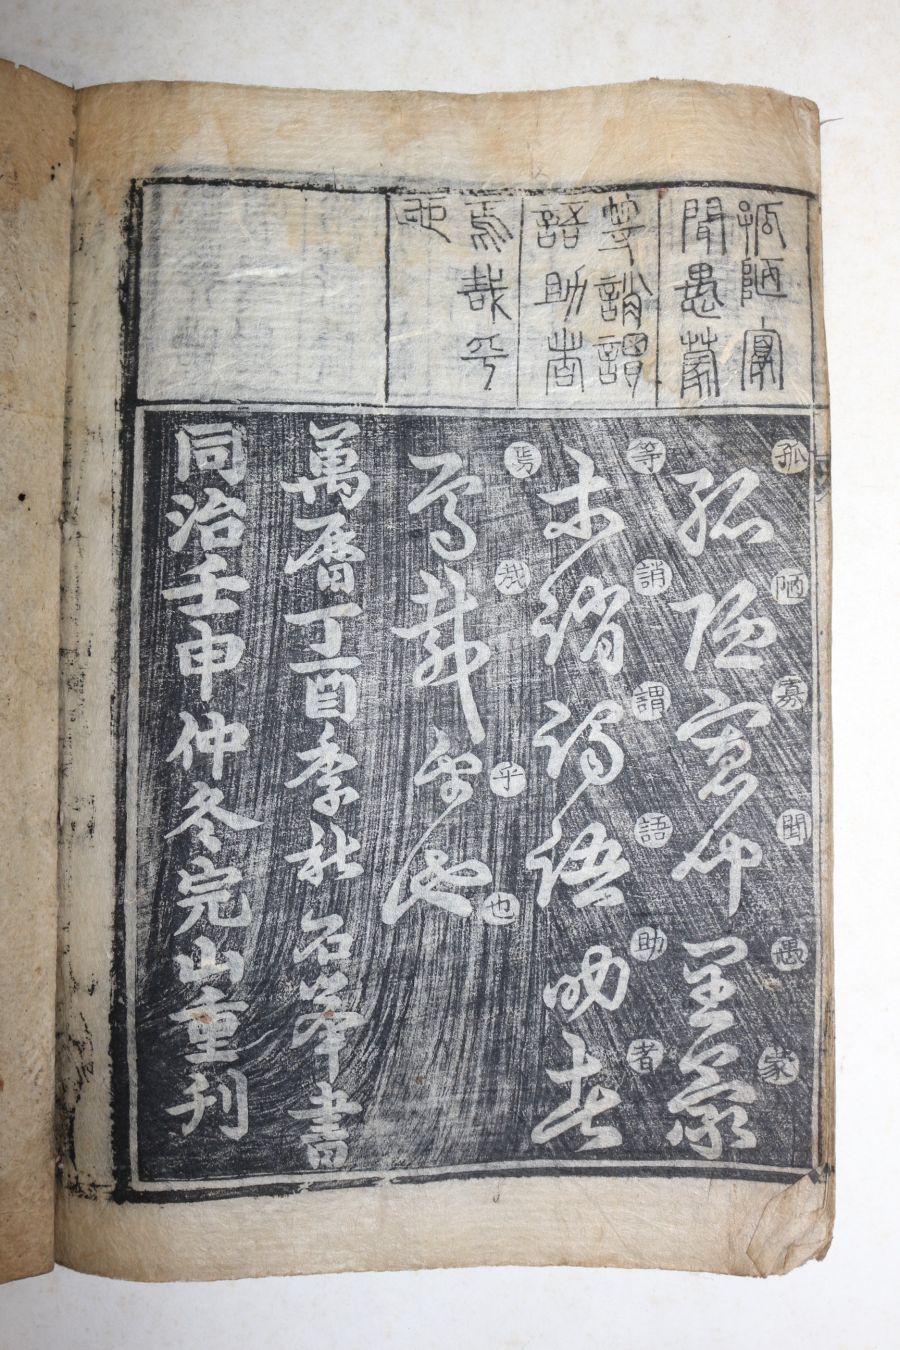 孤陋寡
聞愚蒙
等誚謂
語助者
焉哉乎
也
孤陋寡聞愚蒙
孤陋寡聞愚蒙
等誚謂語助者
等誚謂語助者
焉哉乎也
焉哉乎也
萬曆丁酉季秋石峯書
同治壬申仲冬完山重刊